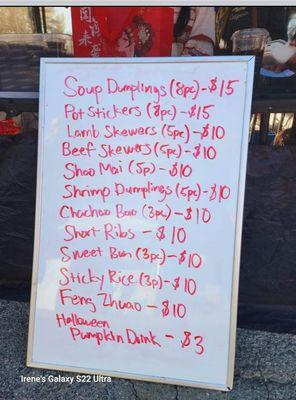 Soup Dumplings (8pc) - $15
Pot Stickers (8pc) - $15
Lamb Skewers (5pc) - $10
Beef Skewers (5pc) - $10
Shoo Mai (5p) - $10
Shrimp Dumplings (5pc) - $10
Chachoo Bao (3pc) - $10
Short Ribs - $10
Sweet Bun (3pc) - $10
Sticky Rice (3p) - $10
Feng Zhuao - $10
Halloween
Pumpkin Drink - $3
Irene's Galaxy S22 Ultra